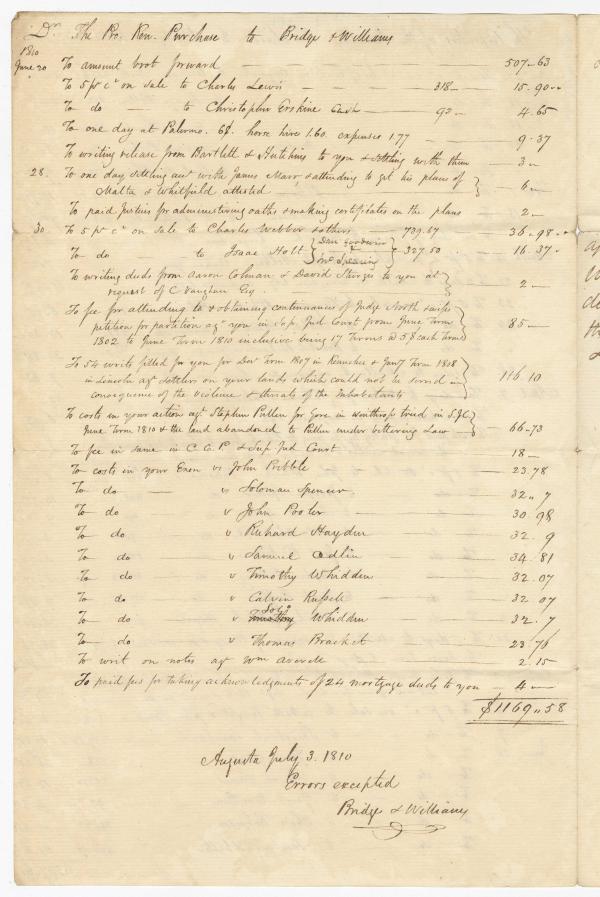 Dr. The Pro. Ken. Purchase to Bridge & Williams
1810
June 20 To amount brot forward 507-63
To 5 pr ct on sale to Charles Lewis 318- 15.90
To do to Christopher Erskine Cash 92- 4.65
To one day at Palermo. 6$. horse hire 1.60 expenses 1.77 9.37
To writing release from Bartlett & Hutchins to you & settling with them 3-
28. To one day settling acct with James Marr & attending to get his plans of
Malta & Whitfield attested 6-
To paid Justices for administering oaths & making certificates on the plans 2-
30 To 5 pr ct on sale to Charles Webber & others 739.67 36-98
To do to Isaac Holt { Danl Goodwin & Mc Spearing } 327.50 16.37
To writing deeds from Aaron Colman & David Sturgis to you at
request of C. Vaughan Esq 2-
To fee for attending to & obtaining continuances of Judge North &
petition for partition agt you in Sup. Jud Court from June Term
1802 to June Term 1810 inclusive being 17 Terms a 5$ each term 85-
To 54 writs filled for you for Decr Term 1807 in Kennebec & Jany Term 1808
in Lincoln agt settlers on your lands which could not be served in
consequence of the violence & threats of the Inhabitants 116.10
To costs in your action agt Stephen Pullen for Gore in Winthrop tried in S.J.C.
June Term 1810 & the land abandoned to Pullen under bettering Law 66-73
To fee in same in C.C.P. & Sup. Jud Court 18-
To costs in your Exon vs John Pribble 23.78
To do vs Soloman Spencer 32.,7
To do v John Pooler 30.98
To do v Richard Hayden 32.9
To do v Samuel Odlin 34.81
To do v Timothy Whidden 32.07
To do v Calvin Russell 32 07
To do v Timothy Whidden 32.7
To do v Thomas Bracket 23.76
To writ on notes agt Wm Averell 2.15
To paid fees for taking acknowledgments of 24 mortgage deeds to you - 4-
$1169.,58
Augusta July 3. 1810
Errors excepted
Bridge & Williams